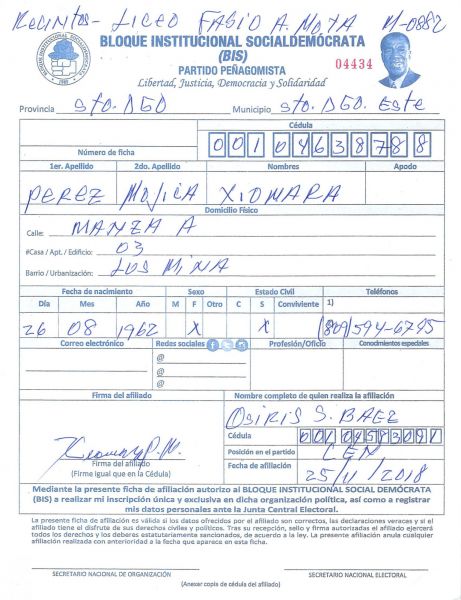 Recintos - Liceo Fabio A. Mota M-0882
BLOQUE INSTITUCIONAL SOCIALDEMÓCRATA
(BIS)
PARTIDO PEÑAGOMISTA
04434
Libertad, Justicia, Democracia y Solidaridad
Provincia Sto. Dgo Municipio Sto. Dgo. Este
Cédula
Número de ficha 001 0463878 8
1er. Apellido 2do. Apellido Nombres Apodo
PEREZ MOJICA XIOMARA
Domicilio Físico
Calle: MANZA A
#Casa / Apt. / Edificio: 03
Barrio / Urbanización: LOS MINA
Fecha de nacimiento Sexo Estado Civil Teléfonos
Día Mes Año M F Otro C S Conviviente 1)
26 08 1962 X X (809) 594-6745
Correo electrónico Redes sociales Profesión/Oficio Conocimientos especiales
@
@
@
Firma del afiliado Nombre completo de quien realiza la afiliación
OSIRIS S. BAEZ
Cédula 001 0458309 1
Posición en el partido CEN
Firma del afiliado
(Firme igual que en la Cédula)
Fecha de afiliación 25/11/2018
Mediante la presente ficha de afiliación autorizo al BLOQUE INSTITUCIONAL SOCIAL DEMÓCRATA
(BIS) a realizar mi inscripción única y exclusiva en dicha organización política, así como a registrar
mis datos personales ante la Junta Central Electoral.
La presente ficha de afiliación es válida si los datos ofrecidos por el afiliado son correctos, las declaraciones veraces y si el
afiliado tiene el disfrute de sus derechos civiles y políticos. Tras su recepción, sello y firma autorizadas el afiliado ejercerá
todos los derechos y los deberes estatutariamente sancionados, de acuerdo a la ley. La presente afiliación anula cualquier
afiliación realizada con anterioridad a la fecha que aparece en esta ficha.
SECRETARIO NACIONAL DE ORGANIZACIÓN SECRETARIO NACIONAL ELECTORAL
(Anexar copia de cédula del afiliado)